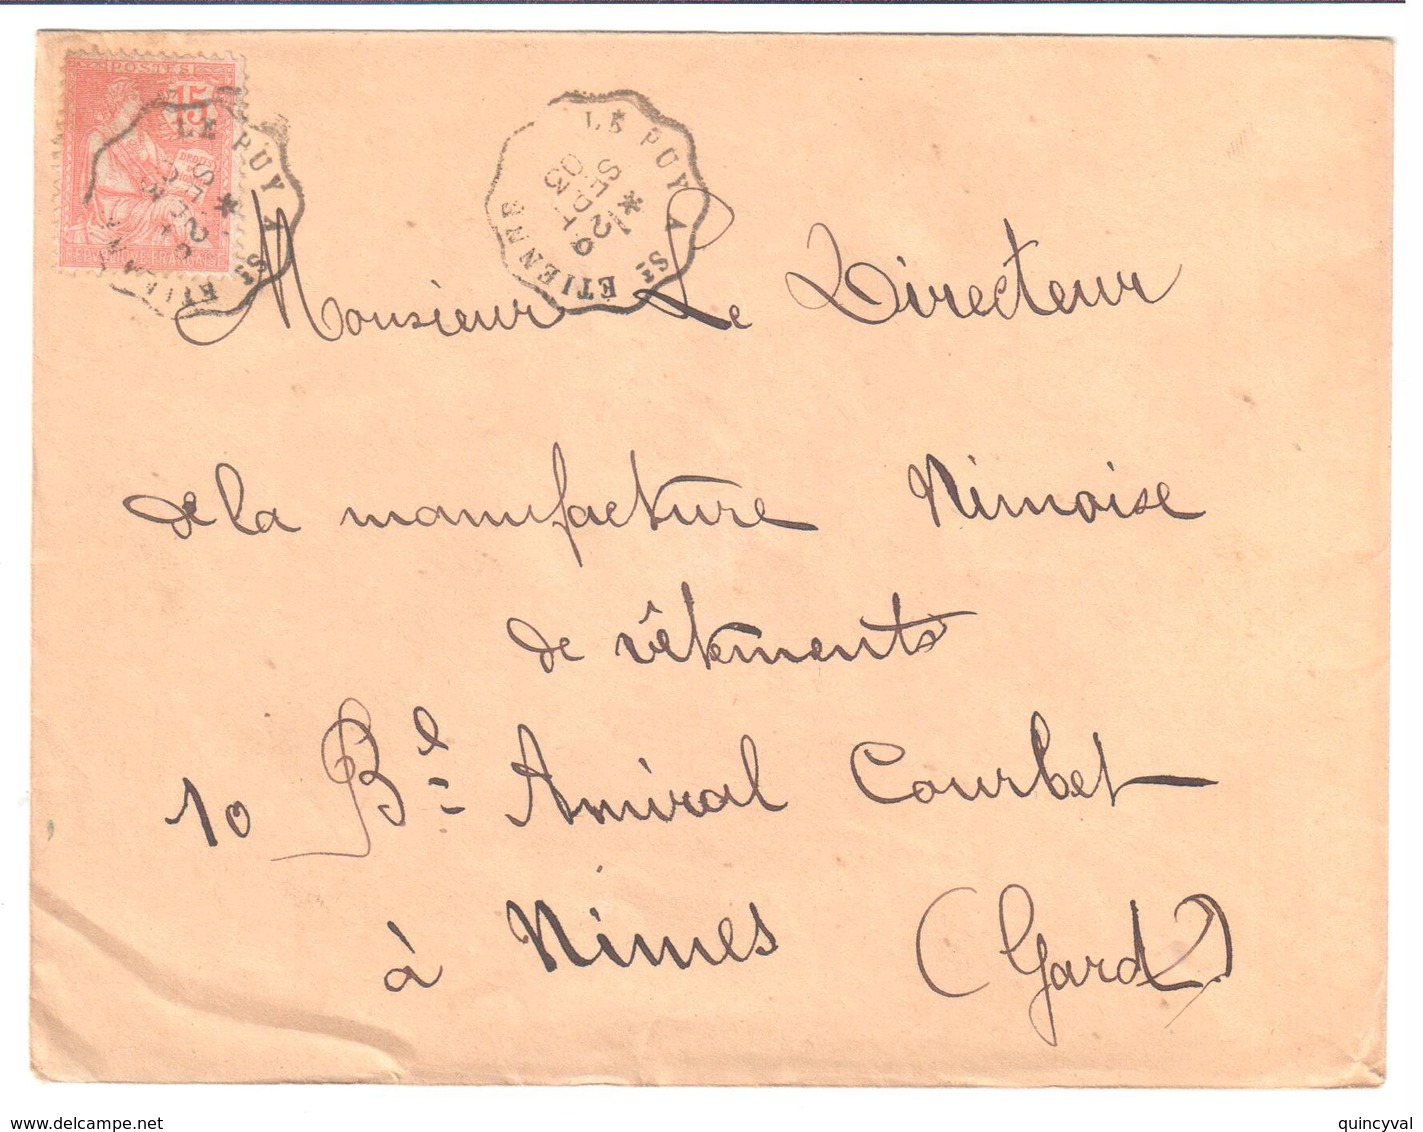 POSTES
15
DROITS
REPUBLIQUE FRANÇAISE
LE PUY A St ETIENNE
*
2E
SEPT
03
LE PUY A St ETIENNE
*
2E
SEPT
03
Monsieur Le Directeur
de la manufacture Nimoise
de vêtements
10 Bd Amiral Courbet
à Nimes (Gard)
www.delcampe.net
quincyval